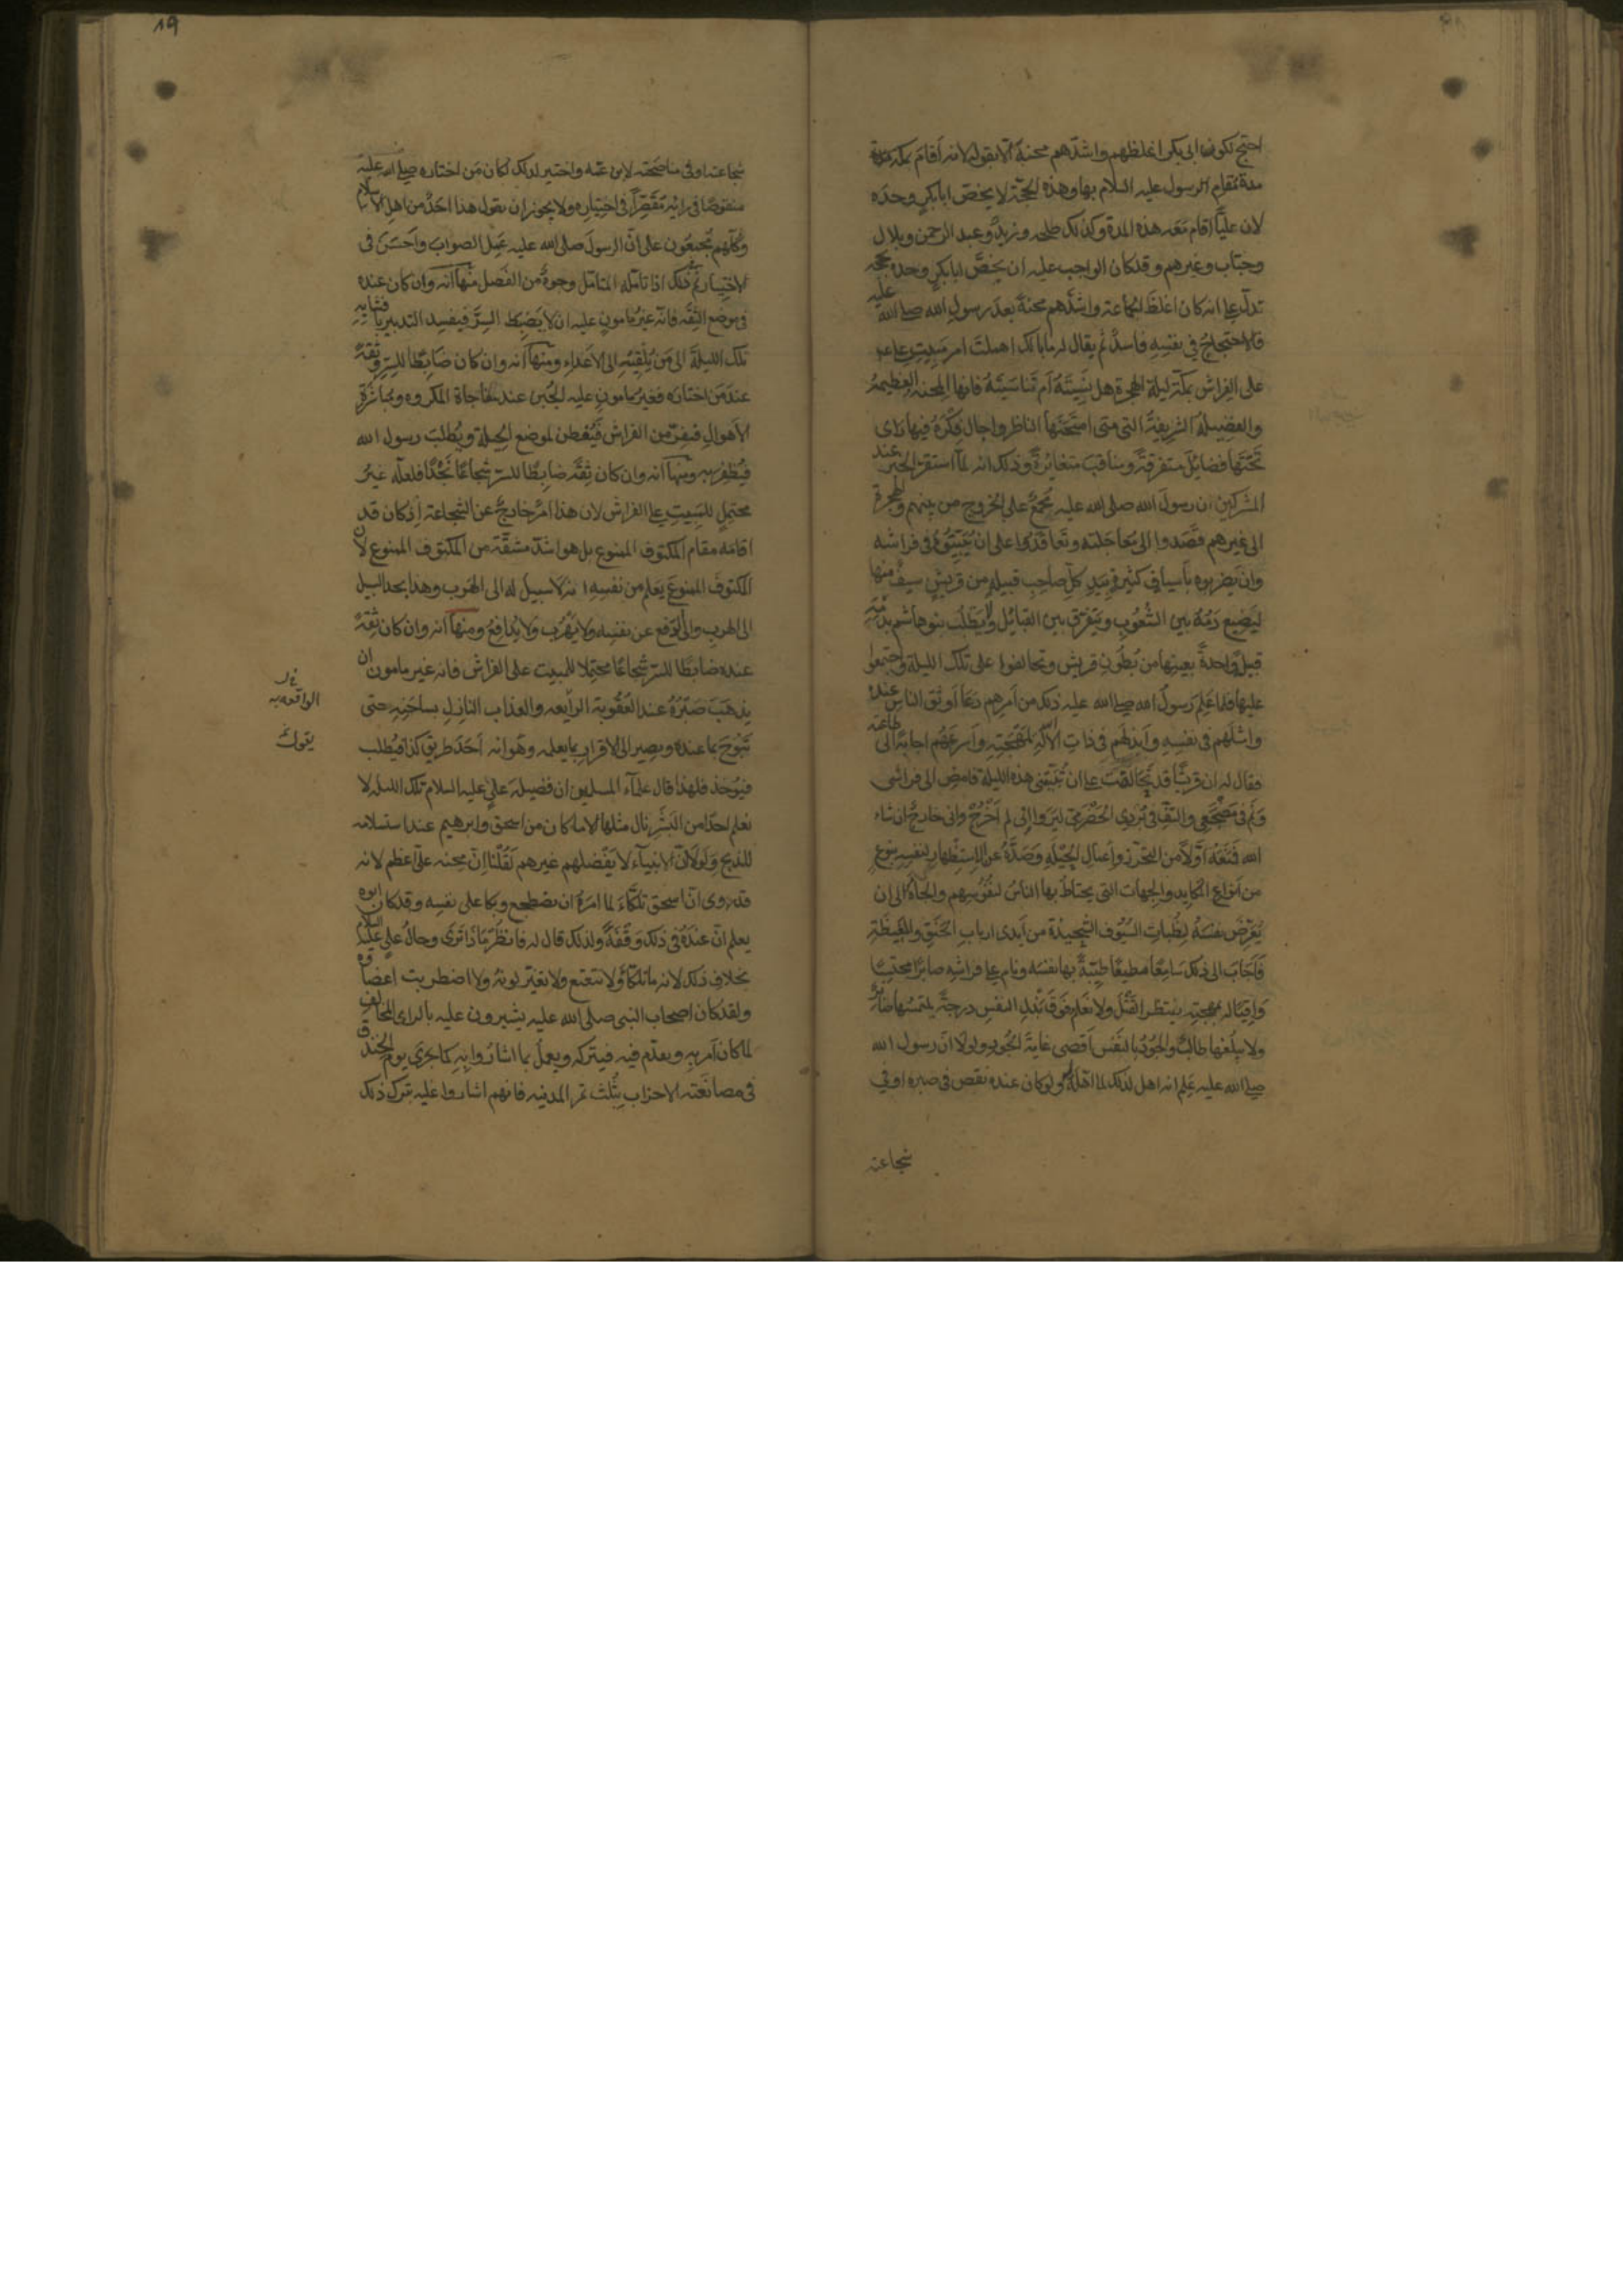 احتج لكون ابى بكر اغلظهم واشدهم محنة الا بقوله لانه اقام بمكة مدة
مدة مقام الرسول عليه السلام بها وهذه الحجة لا يخص ابا بكر وحده
لان عليا اقام معه هذه المدة وكذلك طلحه وزيد وعبد الرحمن وبلال
وخباب وغيرهم وقد كان الواجب عليه ان يخص ابا بكر وحده بحجه
تدل على انه كان اغلظ الجماعة واشدهم محنة بعد رسول الله صلى الله عليه
فالاحتجاج في نفسه فاسد ثم يقال له ما بالك اهملت امر مبيت على ع
على الفراش بمكة ليلة الهجرة هل نسيته ام تناسيته فانها المحنه العظيمة
والفضيلة الشريفة التى متى امتحنها الناظر واجال فكره فيها راى
تحتها فضائل متفرقة ومناقب متغايرة وذلك انه لما استقر الخبر عند
المشركين ان رسول الله صلى الله عليه مجمع على الخروج من بينهم والهجرة
الى غيرهم قصدوا الى معاجلته وتعاقدوا على ان يبيتوه فى فراشه
وان يضربوه باسياف كثيرة بيد كل صاحب قبيلة من قريش سيف منها
ليضيع دمه بين الشعوب ويتفرق بين القبائل ولا يطلب بنو هاشم بدمه
قبيلة واحدة بعينها من بطون قريش وتحالفوا على تلك الليلة واجتمعوا
عليها فلما علم رسول الله صلى الله عليه ذلك من امرهم دعا اوثق الناس عنده
وامثلهم فى نفسه وابذلهم فى ذات الاله لمهجته واسرعهم اجابة الى طاعته
فقال له ان قريشا قد تحالفت على ان تبيتنى هذه الليلة فامض الى فراشى
ونم فى مضجعى والتف فى بردى الحضرمى ليروا انى لم اخرج وانى خارج ان شاء
الله فمنعه اولا من التحرز واعمال الحيلة وصده عن الاستظهار لنفسه بنوع
من انواع المكايد والجهات التى يحتاط بها الناس لنفوسهم والجاه الى ان
يعرض نفسه لظبات السيوف الشحيذة من ايدى ارباب الحنق والغيظة
فاجاب الى ذلك سامعا مطيعا طيبة بها نفسه ونام على فراشه صابرا محتسبا
واقيا له بمهجته ينتظر القتل ولا نعلم فوق بذل النفس درجة يلتمسها صابر
ولا يبلغها طالب والجود بالنفس اقصى غاية الجود ولولا ان رسول الله
صلى الله عليه علم انه اهل لذلك لما اهله ولو كان عنده نقص فى صبره او فى
شجاعته
19
شجاعته او فى مناصحته لابن عمه واختير لذلك لكان من اختاره صلى الله عليه
منقوصا فى رائه مقصرا فى اختياره ولا يجوز ان يقول هذا احد من اهل الاسلام
وكلهم مجمعون على ان الرسول صلى الله عليه عمل الصواب واحسن فى
الاختيار ثم فى ذلك اذا تامله المتامل وجوه من الفضل منها انه وان كان عنده
فى موضع الثقة فانه غير مامون عليه ان لا يضبط السر فيفسد التدبير بافشائه
تلك الليلة الى من يلقيه الى الاعداء ومنها انه وان كان ضابطا للسر وثقة
عند من اختاره فغير مامون عليه الجبن عند مفاجاة المكروه ومباشرة
الاهوال فيفر من الفراش فيفطن لموضع الحيلة ويطلب رسول الله
فيظفر به ومنها انه وان كان ثقة ضابطا للسر شجاعا نجدا فلعله غير
محتمل للمبيت على الفراش لان هذا امر خارج عن الشجاعة اذ كان قد
اقامه مقام المكتوف الممنوع بل هو اشد مشقة من المكتوف الممنوع لان
المكتوف الممنوع يعلم من نفسه انه لا سبيل له الى الهرب وهذا يجد السبيل
الى الهرب والى الدفع عن نفسه ولا يهرب ولا يدافع ومنها انه وان كان ثقة
عنده ضابطا للسر شجاعا محتملا للمبيت على الفراش فانه غير مامون ان
يذهب صبره عند العقوبة الرايعه والعذاب النازل بساحته حتى
يبوح بما عنده ويصير الى الاقرار بما يعلمه وهو انه اخذ طريق كذا فيطلب
فيؤخذ فلهذا قال علماء المسلمين ان فضيلة على عليه السلام تلك الليلة لا
نعلم احدا من البشر نال مثلها الا ما كان من اسحق وابرهيم عند استسلامه
للذبح ولولا ان الانبياء لا يفضلهم غيرهم لقلنا ان محنه على اعظم لانه
قد روى ان اسحق تلكاء لما امره ان يضطجع وبكا على نفسه وقد كان ابوه
يعلم ان عنده فى ذلك وقفة ولذلك قال له فانظر ماذا ترى وحال على عليه السلام
بخلاف ذلك لانه ما تلكا ولا تتعتع ولا تغير لونه ولا اضطربت اعضاوه
ولقد كان اصحاب النبى صلى الله عليه يشيرون عليه بالراى المخالف
لما كان امر به ويقدم فيه فيتركه ويعمل بما اشاروا به كما جرى يوم الخندق
فى مصانعته الاحزاب بثلث تمر المدينه فانهم اشاروا عليه بترك ذلك
الواقعه به
يقول